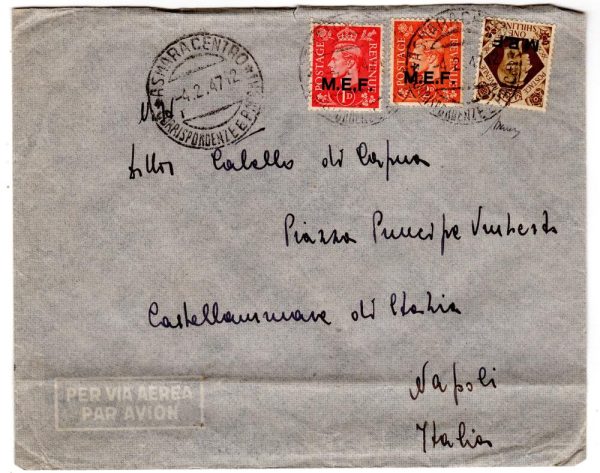 ASMARA CENTRO
4.2.47.12
CORRISPONDENZE E PACCHI
POSTAGE REVENUE
M.E.F.
1D
POSTAGE REVENUE
M.E.F.
2D
ONE SHILLING
M.E.F.
Lillo Cabello di Capua
Piazza Principe Umberto
Castellammare di Stabia
Napoli
Italia
PER VIA AEREA
PAR AVION